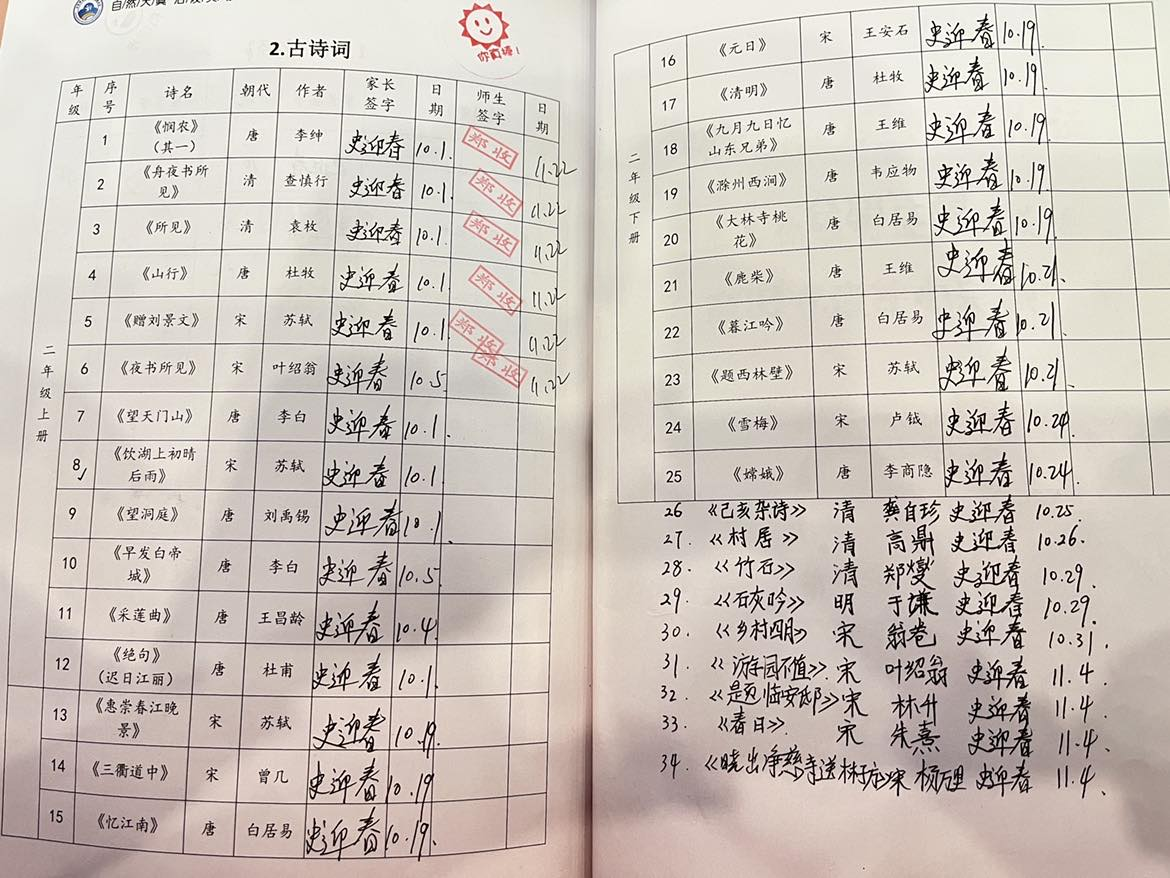 自然天真
你真棒!
2.古诗词
年级 序号 诗名 朝代 作者 家长签字 日期 师生签字 日期
二年级上册
1 《悯农》(其一) 唐 李绅 史迎春 10.1. 郑收 11.22
2 《舟夜书所见》 清 查慎行 史迎春 10.1 郑收 11.22
3 《所见》 清 袁枚 史迎春 10.1 郑收 11.22
4 《山行》 唐 杜牧 史迎春 10.1 郑收 11.22
5 《赠刘景文》 宋 苏轼 史迎春 10.1 郑收 11.22
6 《夜书所见》 宋 叶绍翁 史迎春 10.5 郑收 11.22
7 《望天门山》 唐 李白 史迎春 10.1.
8 《饮湖上初晴后雨》 宋 苏轼 史迎春 10.1
9 《望洞庭》 唐 刘禹锡 史迎春 10.1
10 《早发白帝城》 唐 李白 史迎春 10.5
11 《采莲曲》 唐 王昌龄 史迎春 10.4
12 《绝句》(迟日江丽) 唐 杜甫 史迎春 10.1.
13 《惠崇春江晚景》 宋 苏轼 史迎春 10.19
14 《三衢道中》 宋 曾几 史迎春 10.19
15 《忆江南》 唐 白居易 史迎春 10.19.
16 《元日》 宋 王安石 史迎春 10.19.
二年级下册
17 《清明》 唐 杜牧 史迎春 10.19.
18 《九月九日忆山东兄弟》 唐 王维 史迎春 10.19.
19 《滁州西涧》 唐 韦应物 史迎春 10.19
20 《大林寺桃花》 唐 白居易 史迎春 10.19.
21 《鹿柴》 唐 王维 史迎春 10.21.
22 《暮江吟》 唐 白居易 史迎春 10.21.
23 《题西林壁》 宋 苏轼 史迎春 10.21.
24 《雪梅》 宋 卢钺 史迎春 10.24
25 《嫦娥》 唐 李商隐 史迎春 10.24.
26 《己亥杂诗》 清 龚自珍 史迎春 10.25.
27. 《村居》 清 高鼎 史迎春 10.26.
28. 《竹石》 清 郑燮 史迎春 10.29.
29. 《石灰吟》 明 于谦 史迎春 10.29.
30. 《乡村四月》 宋 翁卷 史迎春 10.31.
31. 《游园不值》 宋 叶绍翁 史迎春 11.4.
32. 《题临安邸》 宋 林升 史迎春 11.4.
33. 《春日》 宋 朱熹 史迎春 11.4.
34. 《晓出净慈寺送林子方》 宋 杨万里 史迎春 11.4.